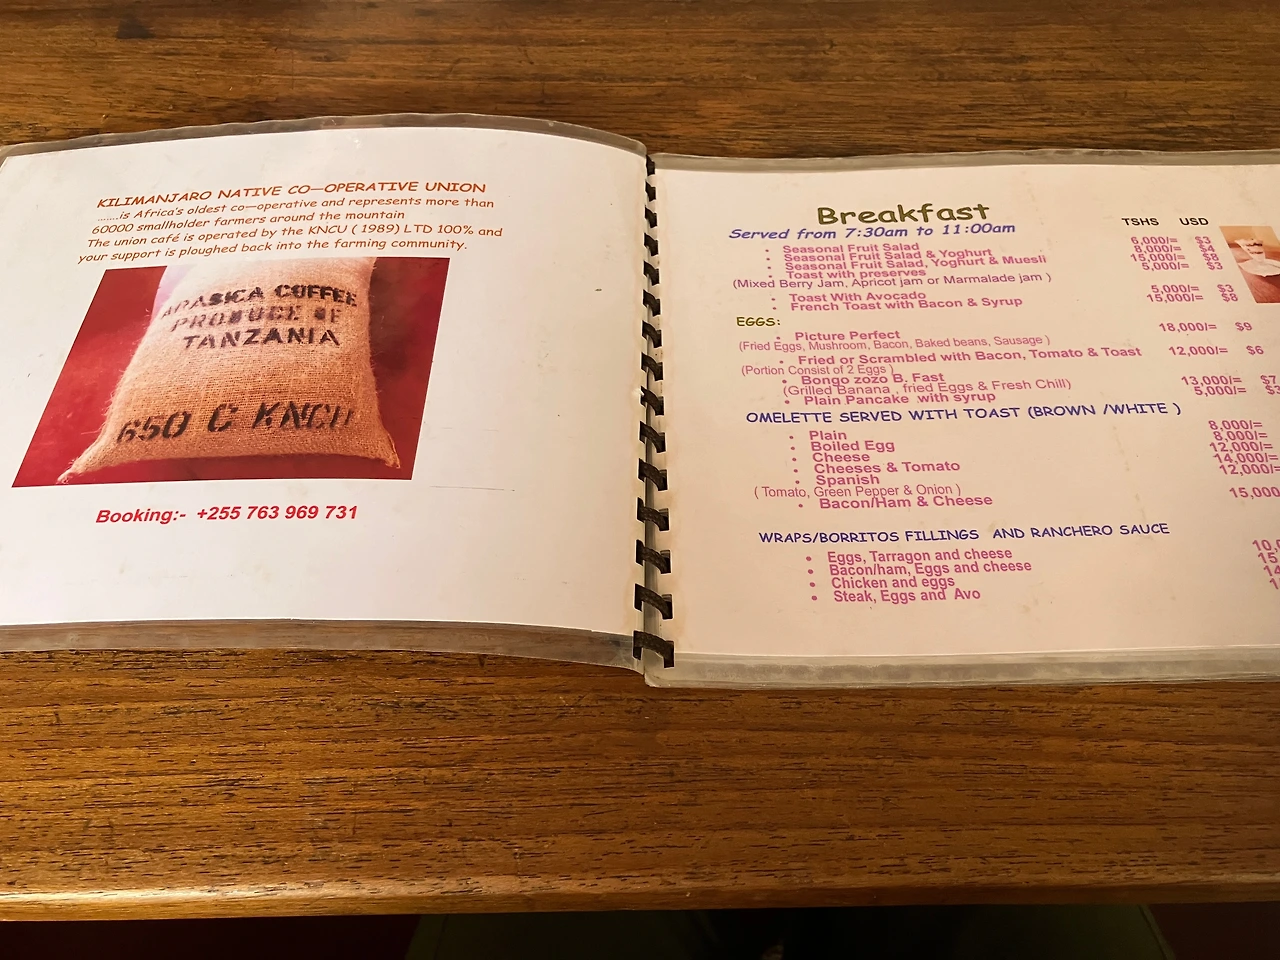 KILIMANJARO NATIVE CO—OPERATIVE UNION
.......is Africa's oldest co—operative and represents more than
60000 smallholder farmers around the mountain
The union café is operated by the KNCU ( 1989) LTD 100% and
your support is ploughed back into the farming community.
ARABICA COFFEE
PRODUCE OF
TANZANIA
650 C KNCU
Booking:- +255 763 969 731
Breakfast
Served from 7:30am to 11:00am
TSHS USD
Seasonal Fruit Salad 6,000/= $3
Seasonal Fruit Salad & Yoghurt 8,000/= $4
Seasonal Fruit Salad, Yoghurt & Muesli 15,000/= $8
Toast with preserves 5,000/= $3
(Mixed Berry Jam, Apricot jam or Marmalade jam )
Toast With Avocado 5,000/= $3
French Toast with Bacon & Syrup 15,000/= $8
EGGS:
Picture Perfect 18,000/= $9
(Fried Eggs, Mushroom, Bacon, Baked beans, Sausage )
Fried or Scrambled with Bacon, Tomato & Toast 12,000/= $6
(Portion Consist of 2 Eggs )
Bongo zozo B. Fast 13,000/= $7
(Grilled Banana , fried Eggs & Fresh Chill)
Plain Pancake with syrup 5,000/= $3
OMELETTE SERVED WITH TOAST (BROWN /WHITE )
Plain 8,000/=
Boiled Egg 8,000/=
Cheese 12,000/=
Cheeses & Tomato 14,000/=
Spanish 12,000/=
( Tomato, Green Pepper & Onion )
Bacon/Ham & Cheese 15,000
WRAPS/BORRITOS FILLINGS AND RANCHERO SAUCE
Eggs, Tarragon and cheese 10,
Bacon/ham, Eggs and cheese 15
Chicken and eggs 14
Steak, Eggs and Avo